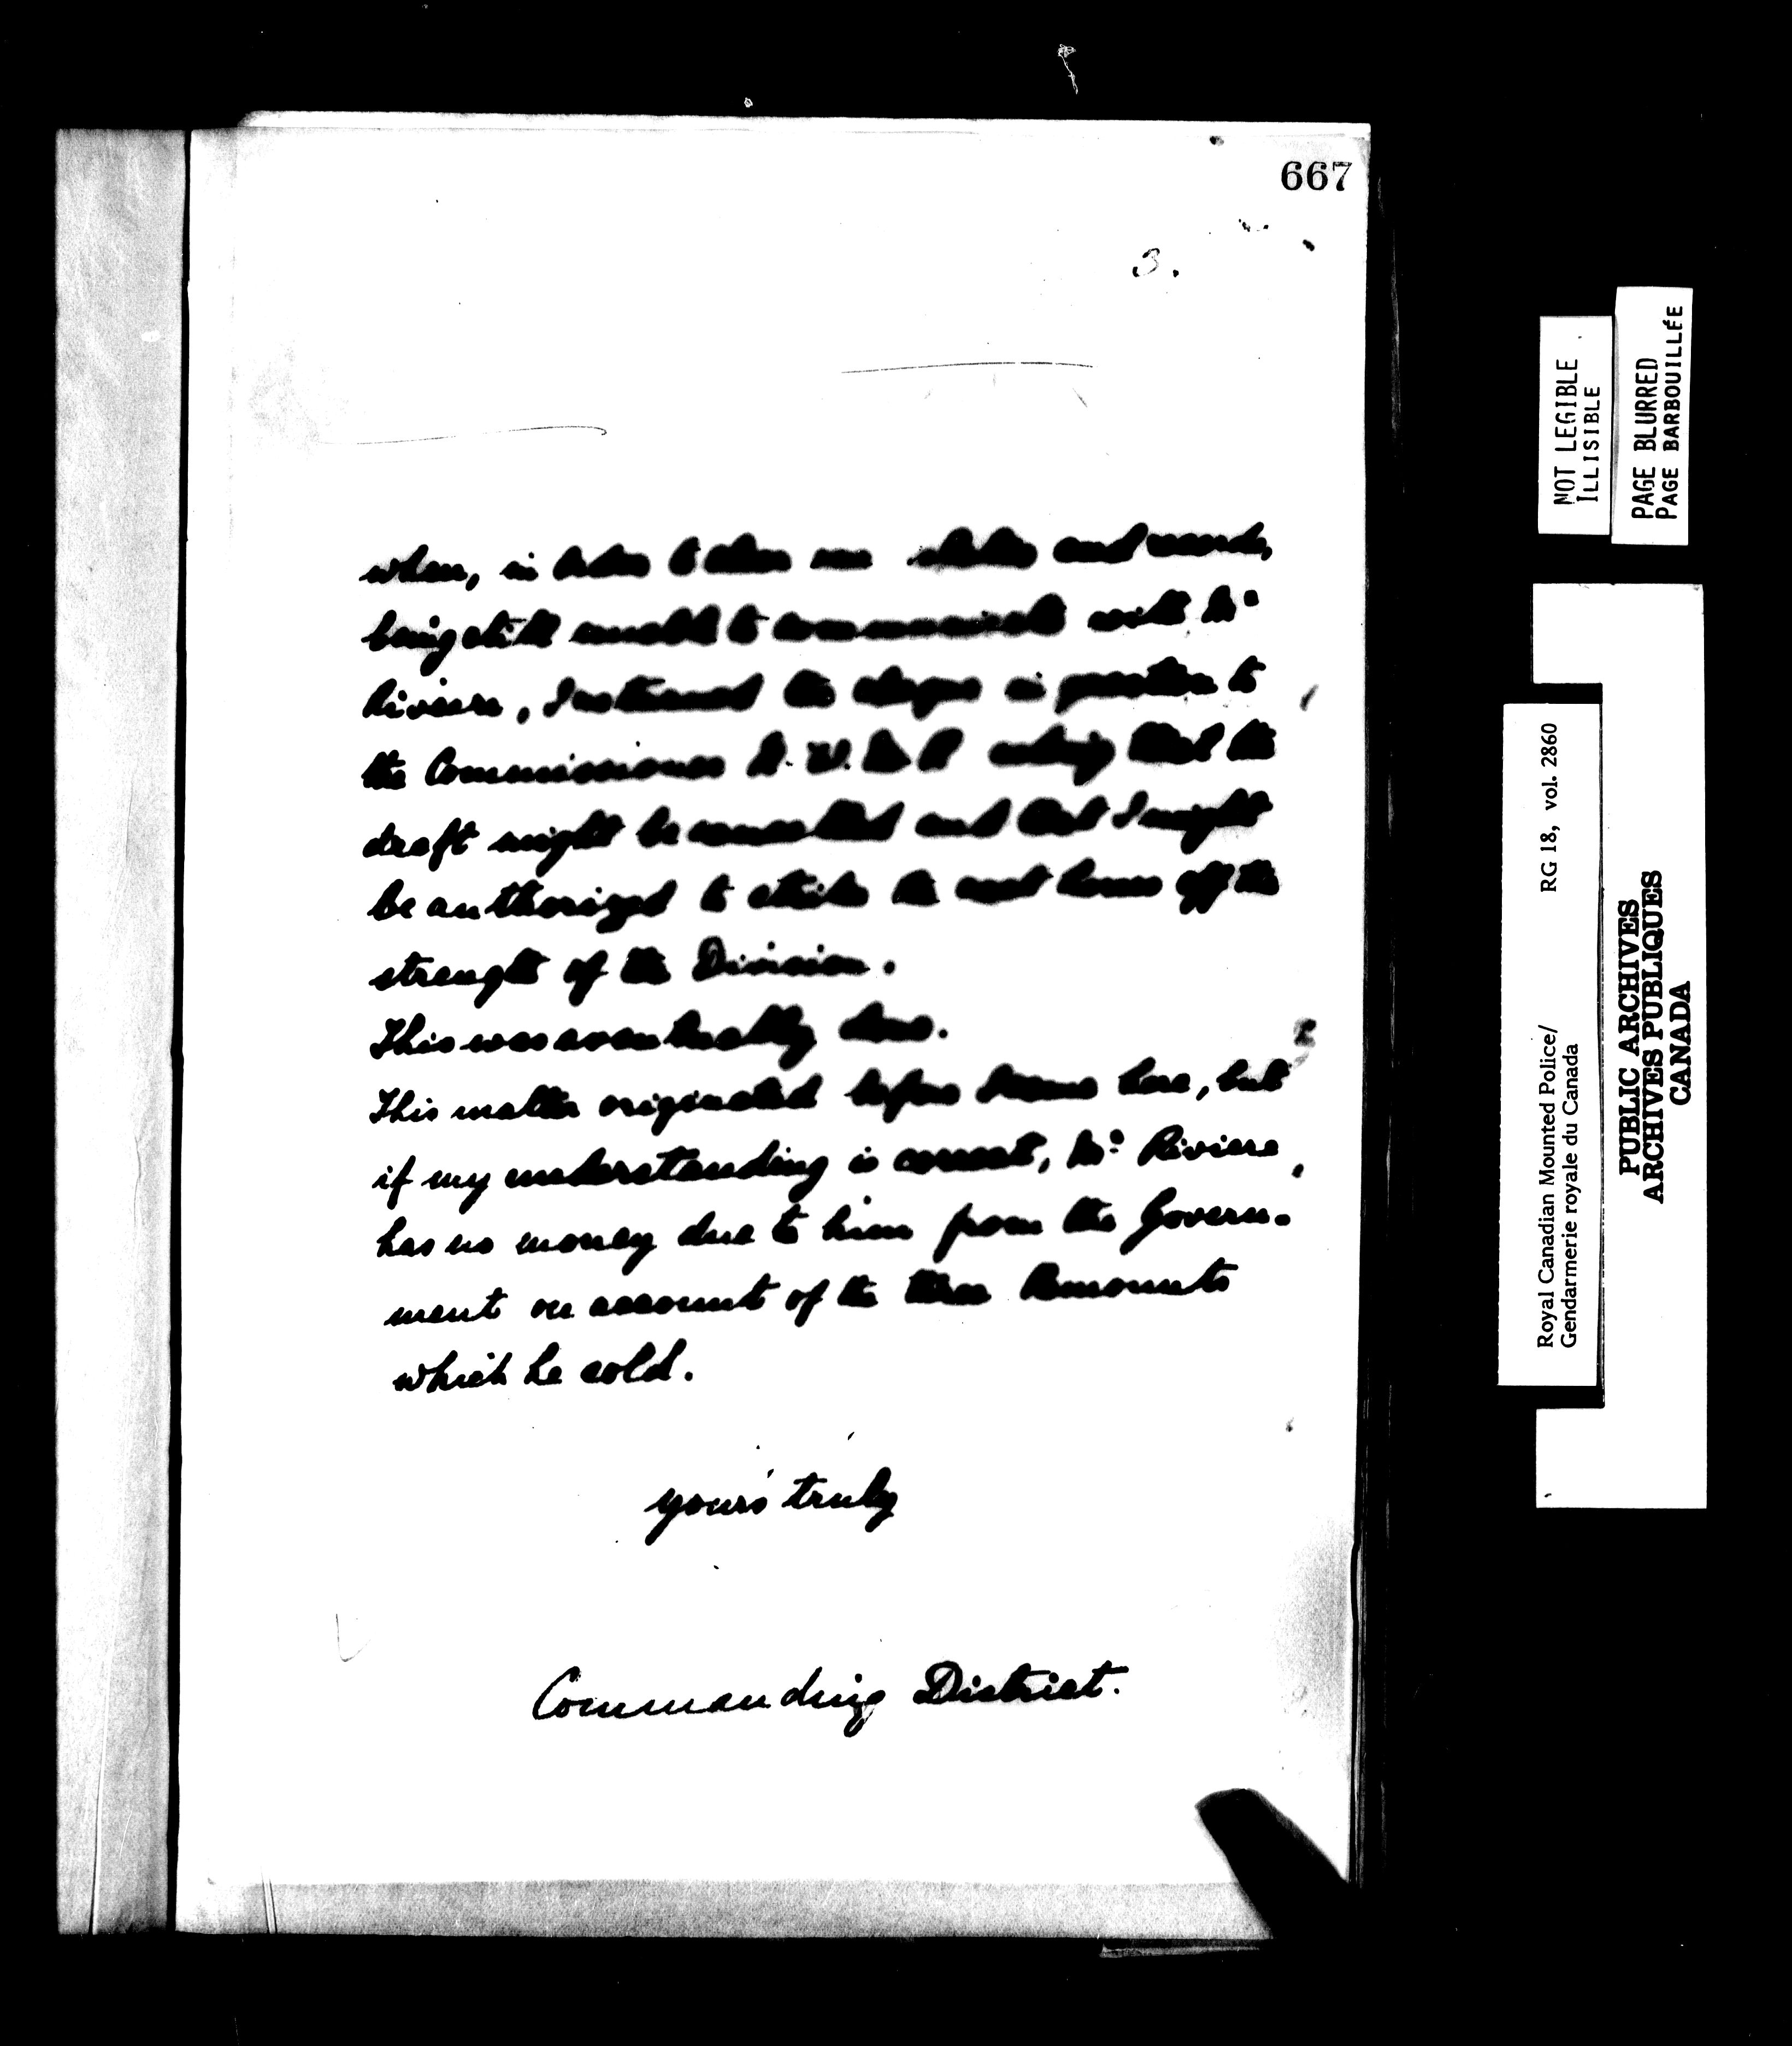 667
3.
when, in order to clear our books and records,
being still unable to communicate with Mr
Riviere, I returned the cheque in question to
the Commissioner N.W.M.P. asking that the
draft might be cancelled and that I might
be authorized to strike the horses off the
strength of the Division.
This was eventually done.
This matter originated before I came here, but
if my understanding is correct, Mr Riviere,
has no money due to him from the Govern-
ment on account of the three Remounts
which he sold.
yours truly
Commanding District.
NOT LEGIBLE
ILLISIBLE
PAGE BLURRED
PAGE BARBOUILLÉE
Royal Canadian Mounted Police/ RG 18, vol. 2860
Gendarmerie royale du Canada
PUBLIC ARCHIVES
ARCHIVES PUBLIQUES
CANADA